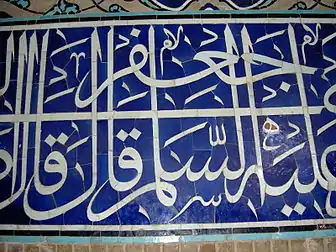 جعفر
علیه السلم قال قال